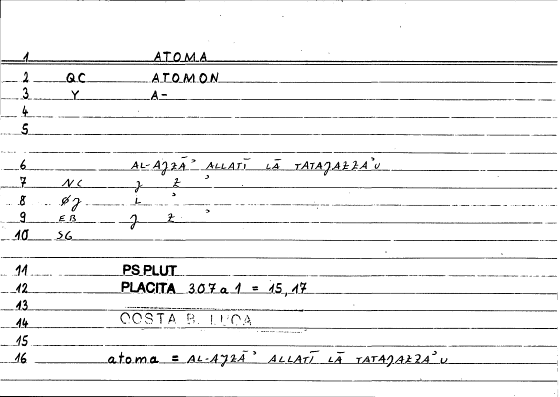 1 ATOMA
2 QC ATOMON
3 Y A-
4
5
6 AL-AȷZĀʾ ALLATĪ LĀ TATAȷAZZAʾU
7 NC ȷ Z ʾ
8 Øȷ L ʾ
9 EB ȷ Z ʾ
10 SG
11 PS PLUT
12 PLACITA 307a1 = 15,17
13
14 COSTA B. LUCA
15
16 atoma = AL-AȷZĀʾ ALLATĪ LĀ TATAȷAZZAʾU